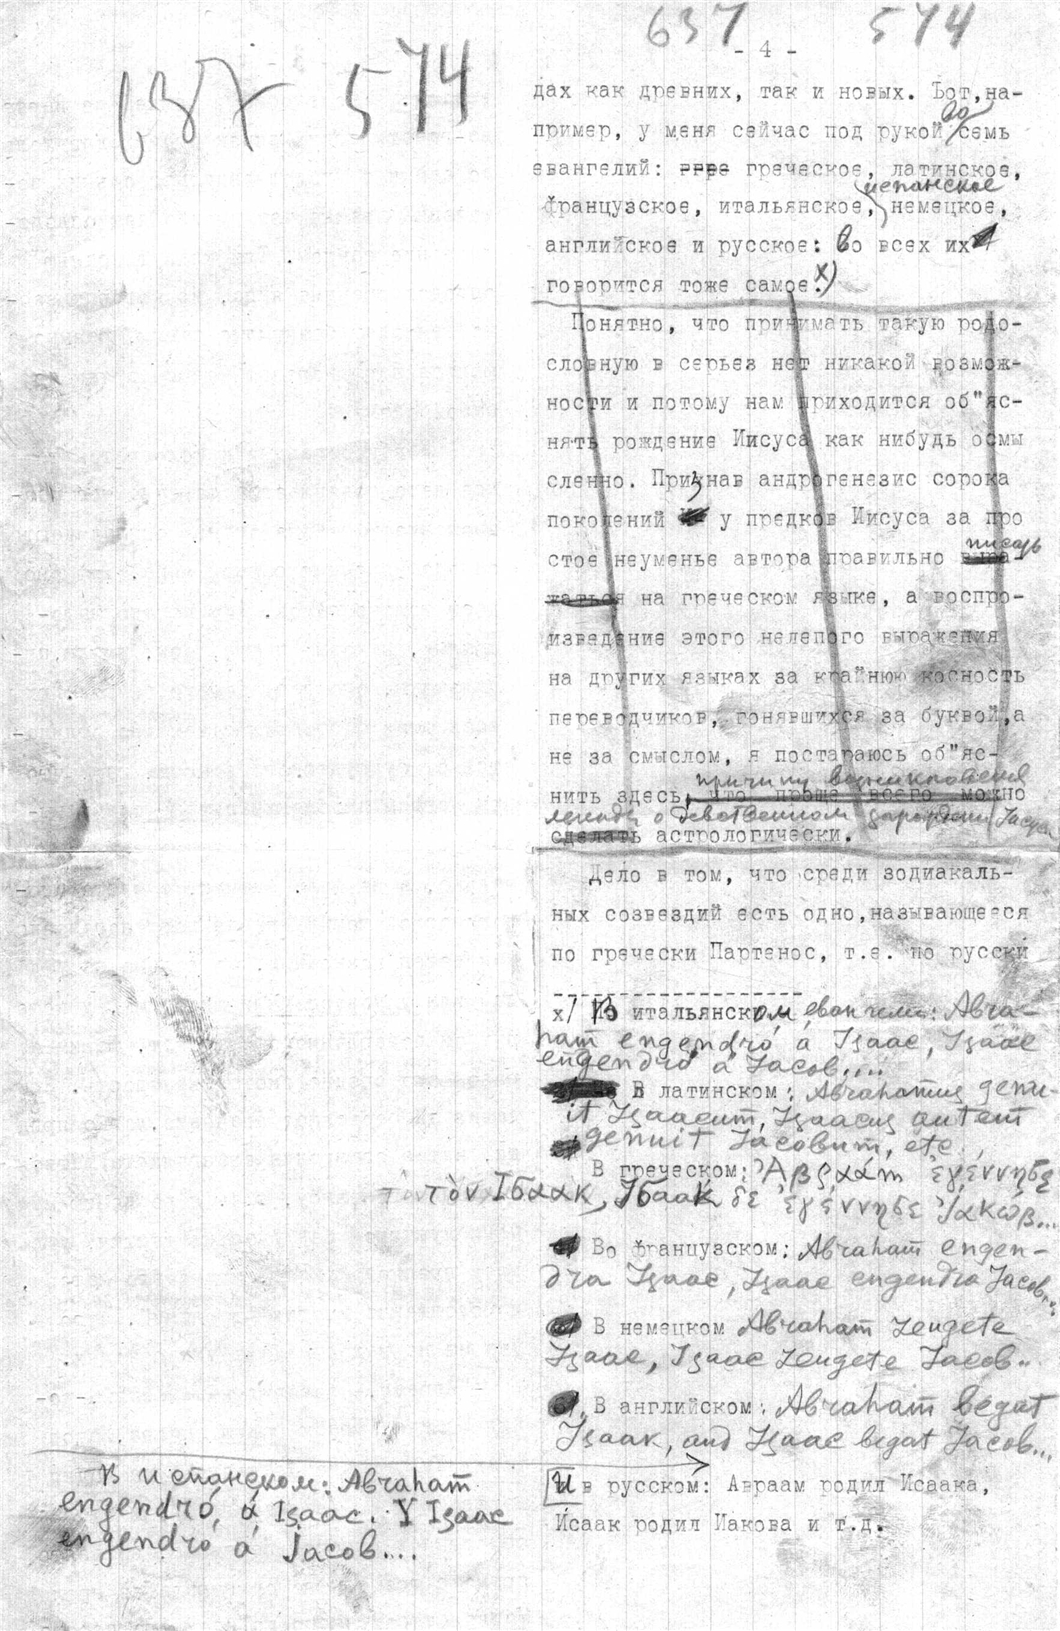 637 574
637 574
- 4 -
дах как древних, так и новых. Вот, на-
во
пример, у меня сейчас под рукой семь
евангелий: греческое, латинское,
испанское
французское, итальянское, немецкое,
английское и русское: во всех их
говорится тоже самое.х)
Понятно, что принимать такую родо-
словную в серьез нет никакой возмож-
ности и потому нам приходится об"яс-
нять рождение Иисуса как нибудь осмы
сленно. Признав андрогенезис сорока
поколений у предков Иисуса за про
писать
стое неуменье автора правильно выра-
жаться на греческом языке, а воспро-
изведение этого нелепого выражения
на других языках за крайнюю косность
переводчиков, гонявшихся за буквой,а
не за смыслом, я постараюсь об"яс-
причину возникновения
нить здесь, что проще всего можно
легенды о девственном зарождении
сделать астрологически.
Дело в том, что среди зодиакаль-
ных созвездий есть одно,называющееся
по гречески Партенос, т.е. по русски
х/ В итальянском евангелии: Abra-
ham engendró á Isaac, Isaac
engendró á Jacob....
В латинском: Abrahamus genu-
it Isaacum, Isaacus autem
genuit Jacobum, etc.
В греческом: Ἀβραάm ἐγέννησε
τὸν Iσαακ, Iσαακ δε ἐγέννησε Ἰακώβ...
Во французском: Abraham engen-
dra Isaac, Isaac engendra Jacob...
В немецком Abraham zeugete
Isaac, Isaac zeugete Jacob..
В английском: Abraham begat
Isaak, and Isaac begat Jacob...
В испанском: Abraham
engendró á Isaac. Y Isaac
engendró á Jacob....
И в русском: Авраам родил Исаака,
Исаак родил Иакова и т.д.